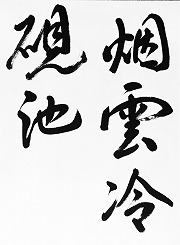 烟雲冷
硯池